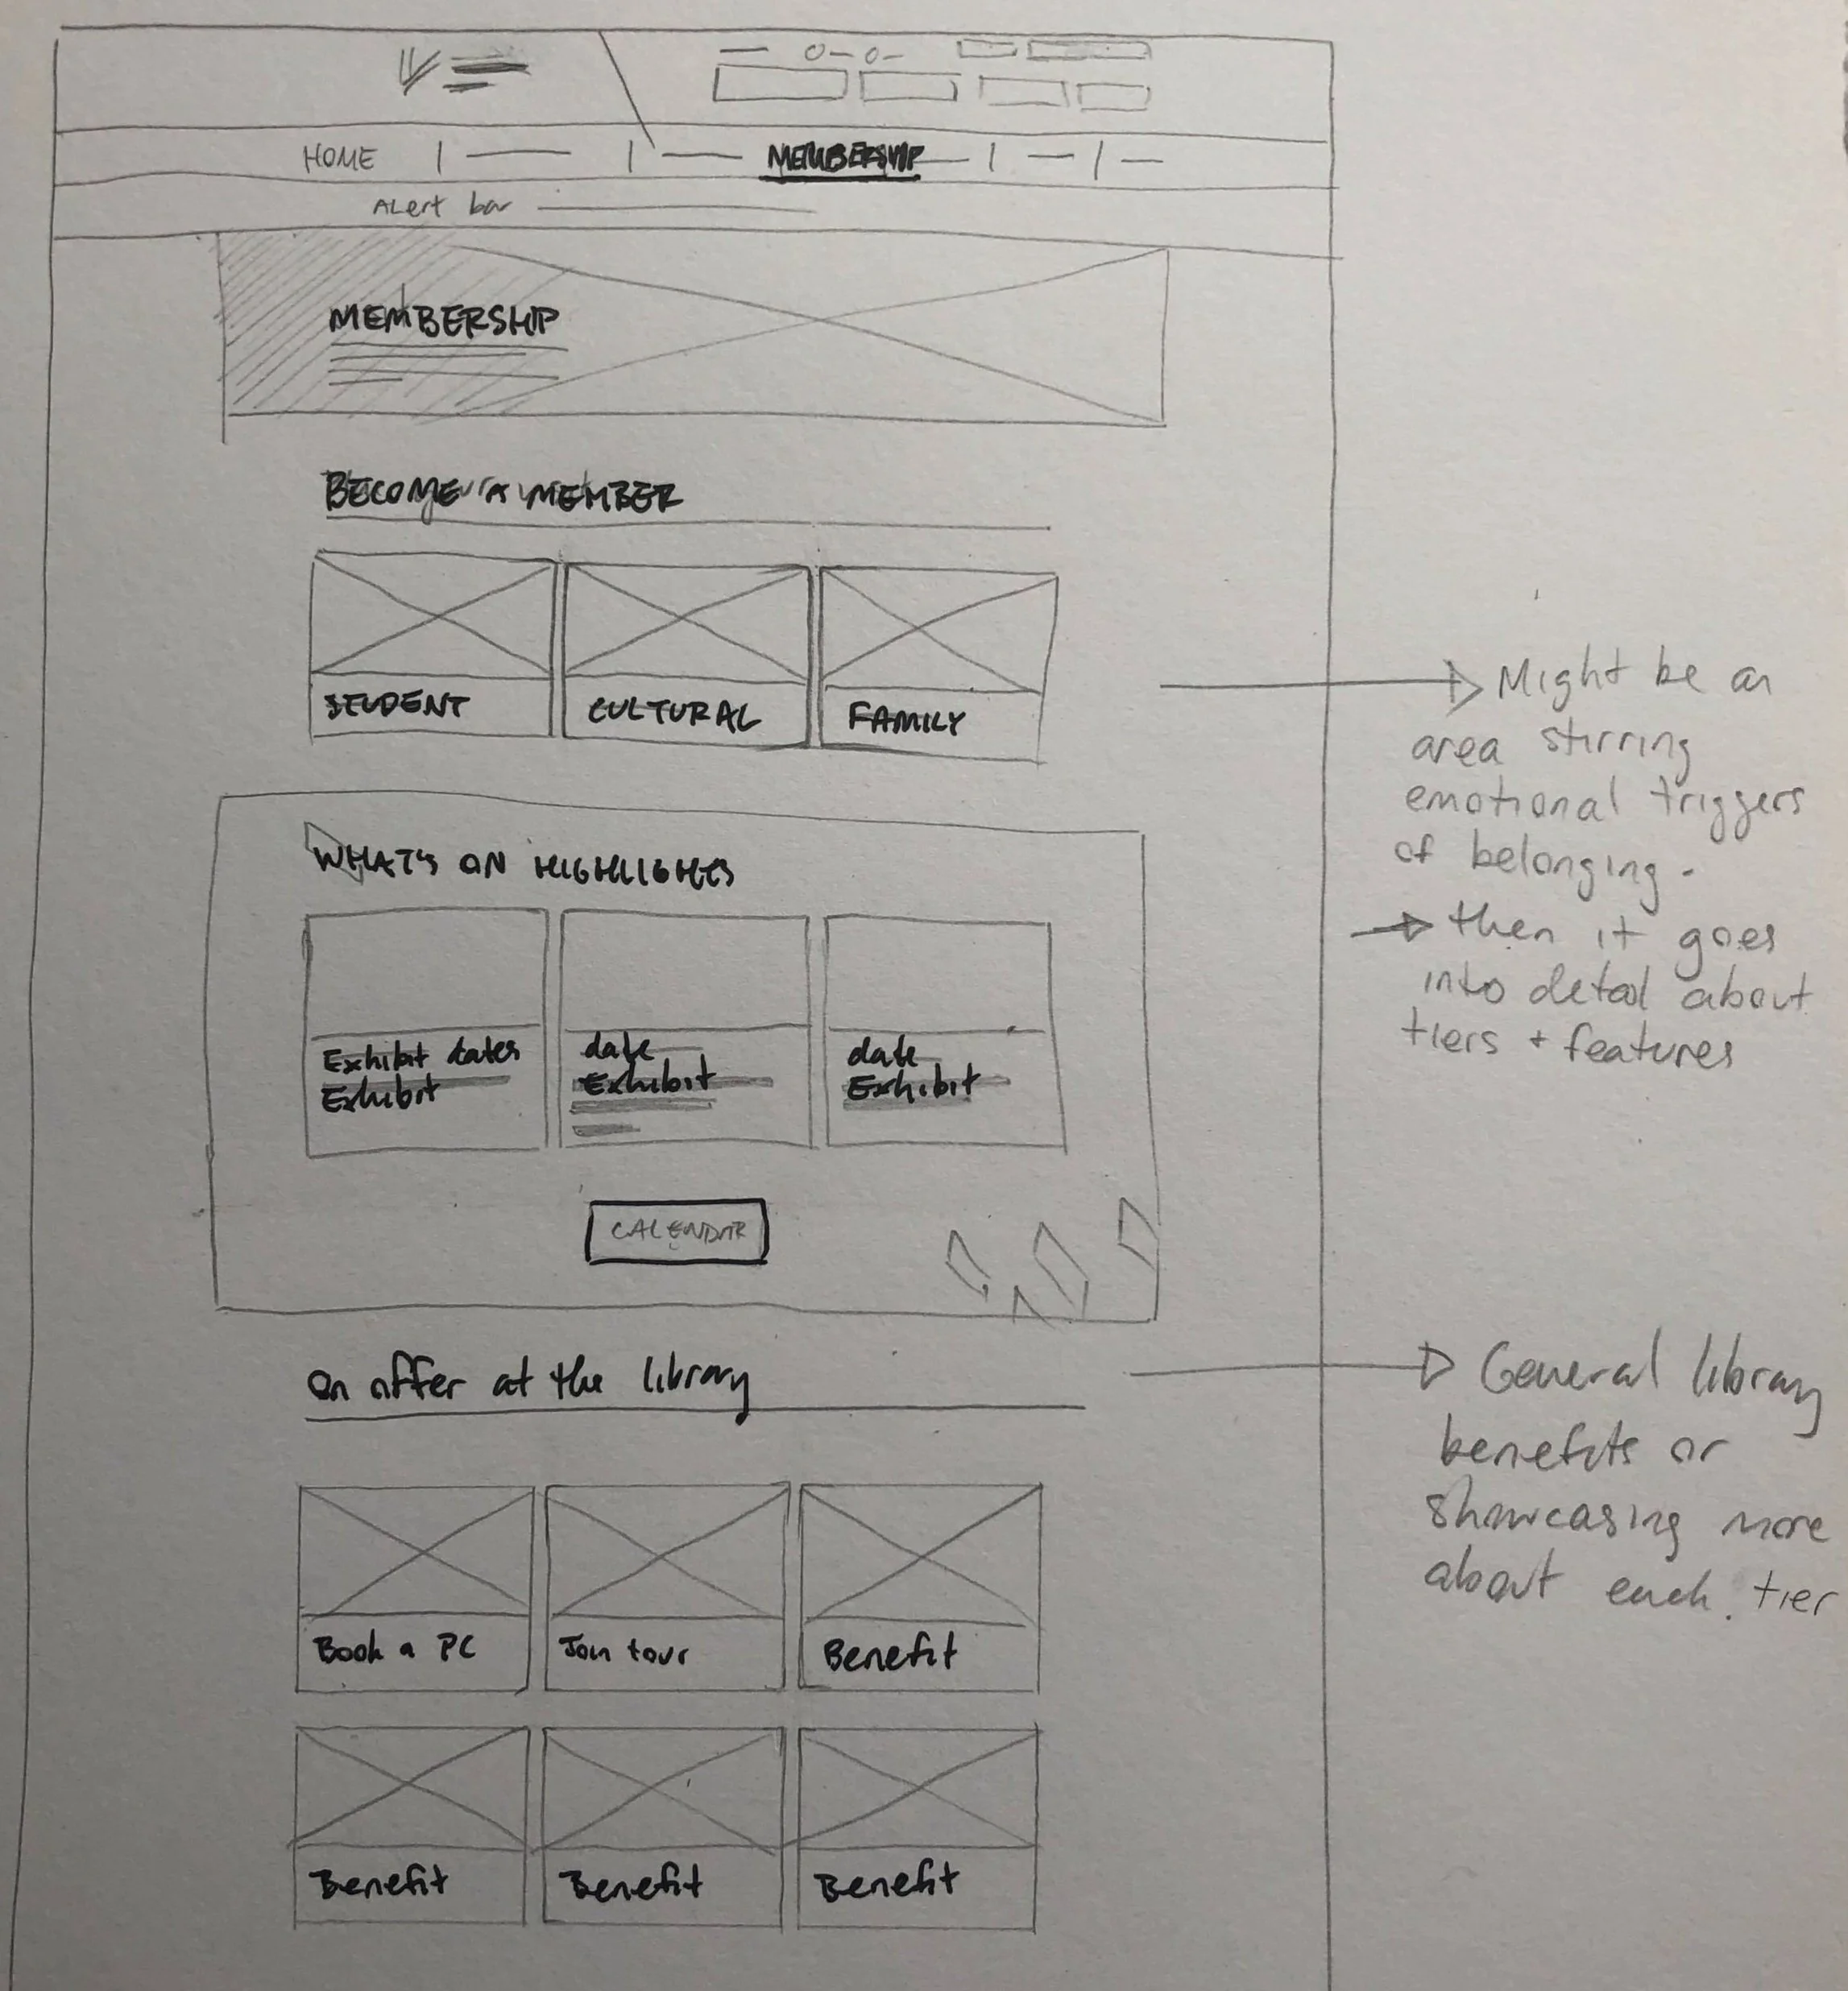 HOME
MEMBERSHIP
ALert bar
MEMBERSHIP
BECOME A MEMBER
STUDENT
CULTURAL
FAMILY
Might be an
area stirring
emotional triggers
of belonging.
then it goes
into detail about
tiers + features
WHAT'S ON HIGHLIGHTS
Exhibit dates
Exhibit
date
Exhibit
date
Exhibit
CALENDAR
on offer at the library
General library
benefits or
showcasing more
about each tier
Book a PC
Join tour
Benefit
Benefit
Benefit
Benefit